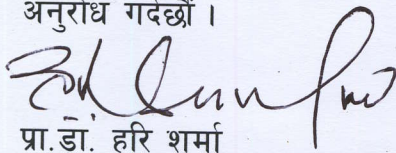 अनुरोध गर्दछौं ।
प्रा.डा. हरि शर्मा